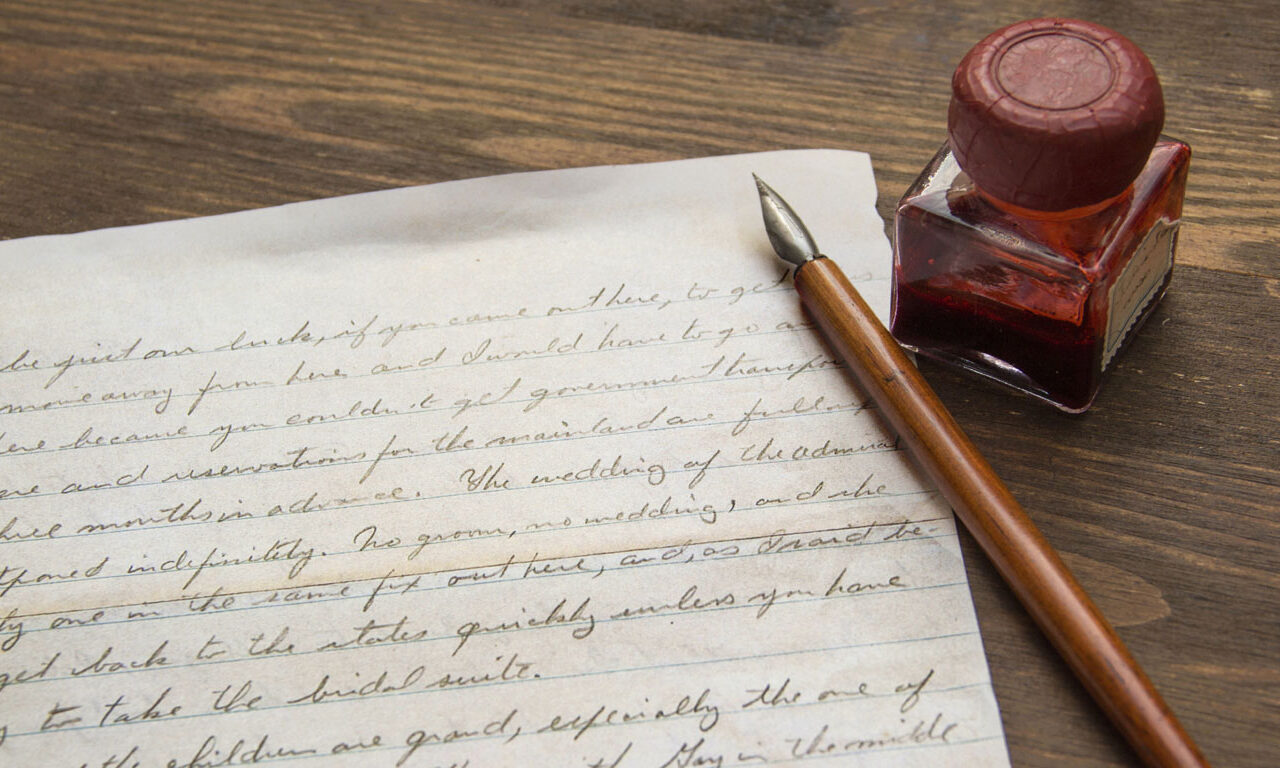 be just our luck, if you came out here, to get
move away from here and I would have to go
because you couldn't get government
and reservations for the mainland are full
months in advance. The wedding of the admiral
indefinitely. No groom, no wedding, and she
one in the same fix out here, and, as I said be-
get back to the states quickly unless you have
to take the bridal suite.
the children are grand, especially the one of
Gay in the middle